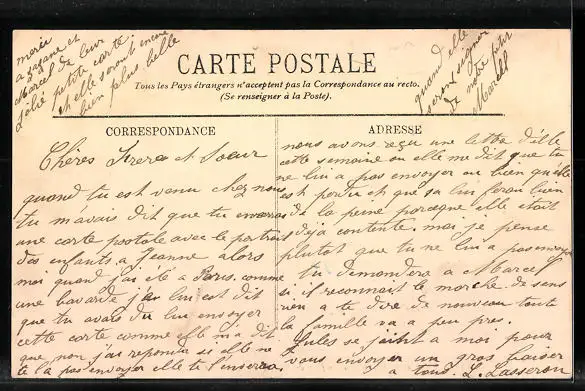 merci
a Suzanne et
Marcel de leur
jolie petite carte.
et elle seront encore
bien plus belle
quand elle
seront signer
de notre petit
Marcell
CARTE POSTALE
Tous les Pays étrangers n'acceptent pas la Correspondance au recto.
(Se renseigner à la Poste).
CORRESPONDANCE
Chères Frere et Soeur
quand tu est venu chez nous
tu m'avais dit que tu
une carte postale avec le portrait
des enfants a Jeanne alors
moi quand j'ai été a Paris. comme
une bavarde j'ai lui est dit
que tu avais du lui envoyer
cette carte comme elle m'a dit
que non j'ai repondu si elle ne
te la pas envoyer elle t'enverai
ADRESSE
nous avons reçu une lettre d'elle
cette semaine ou elle me dit que tu
ne lui a pas envoyer ou bien qu'elle
est perdu et que sa lui ferai bien
de la peine parceque elle etait
déja contente. moi je pense
plutot que tu ne lui a pas envoyer
tu demandera a Marcel
si il reconnait le marche de sens
rien a te dire de nouveau toute
la famille va a peu pres.
Jules se joint a moi pour
vous envoyer un gros baiser
a tous. L. Lasseron